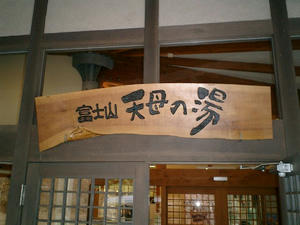 富士山 天母の湯